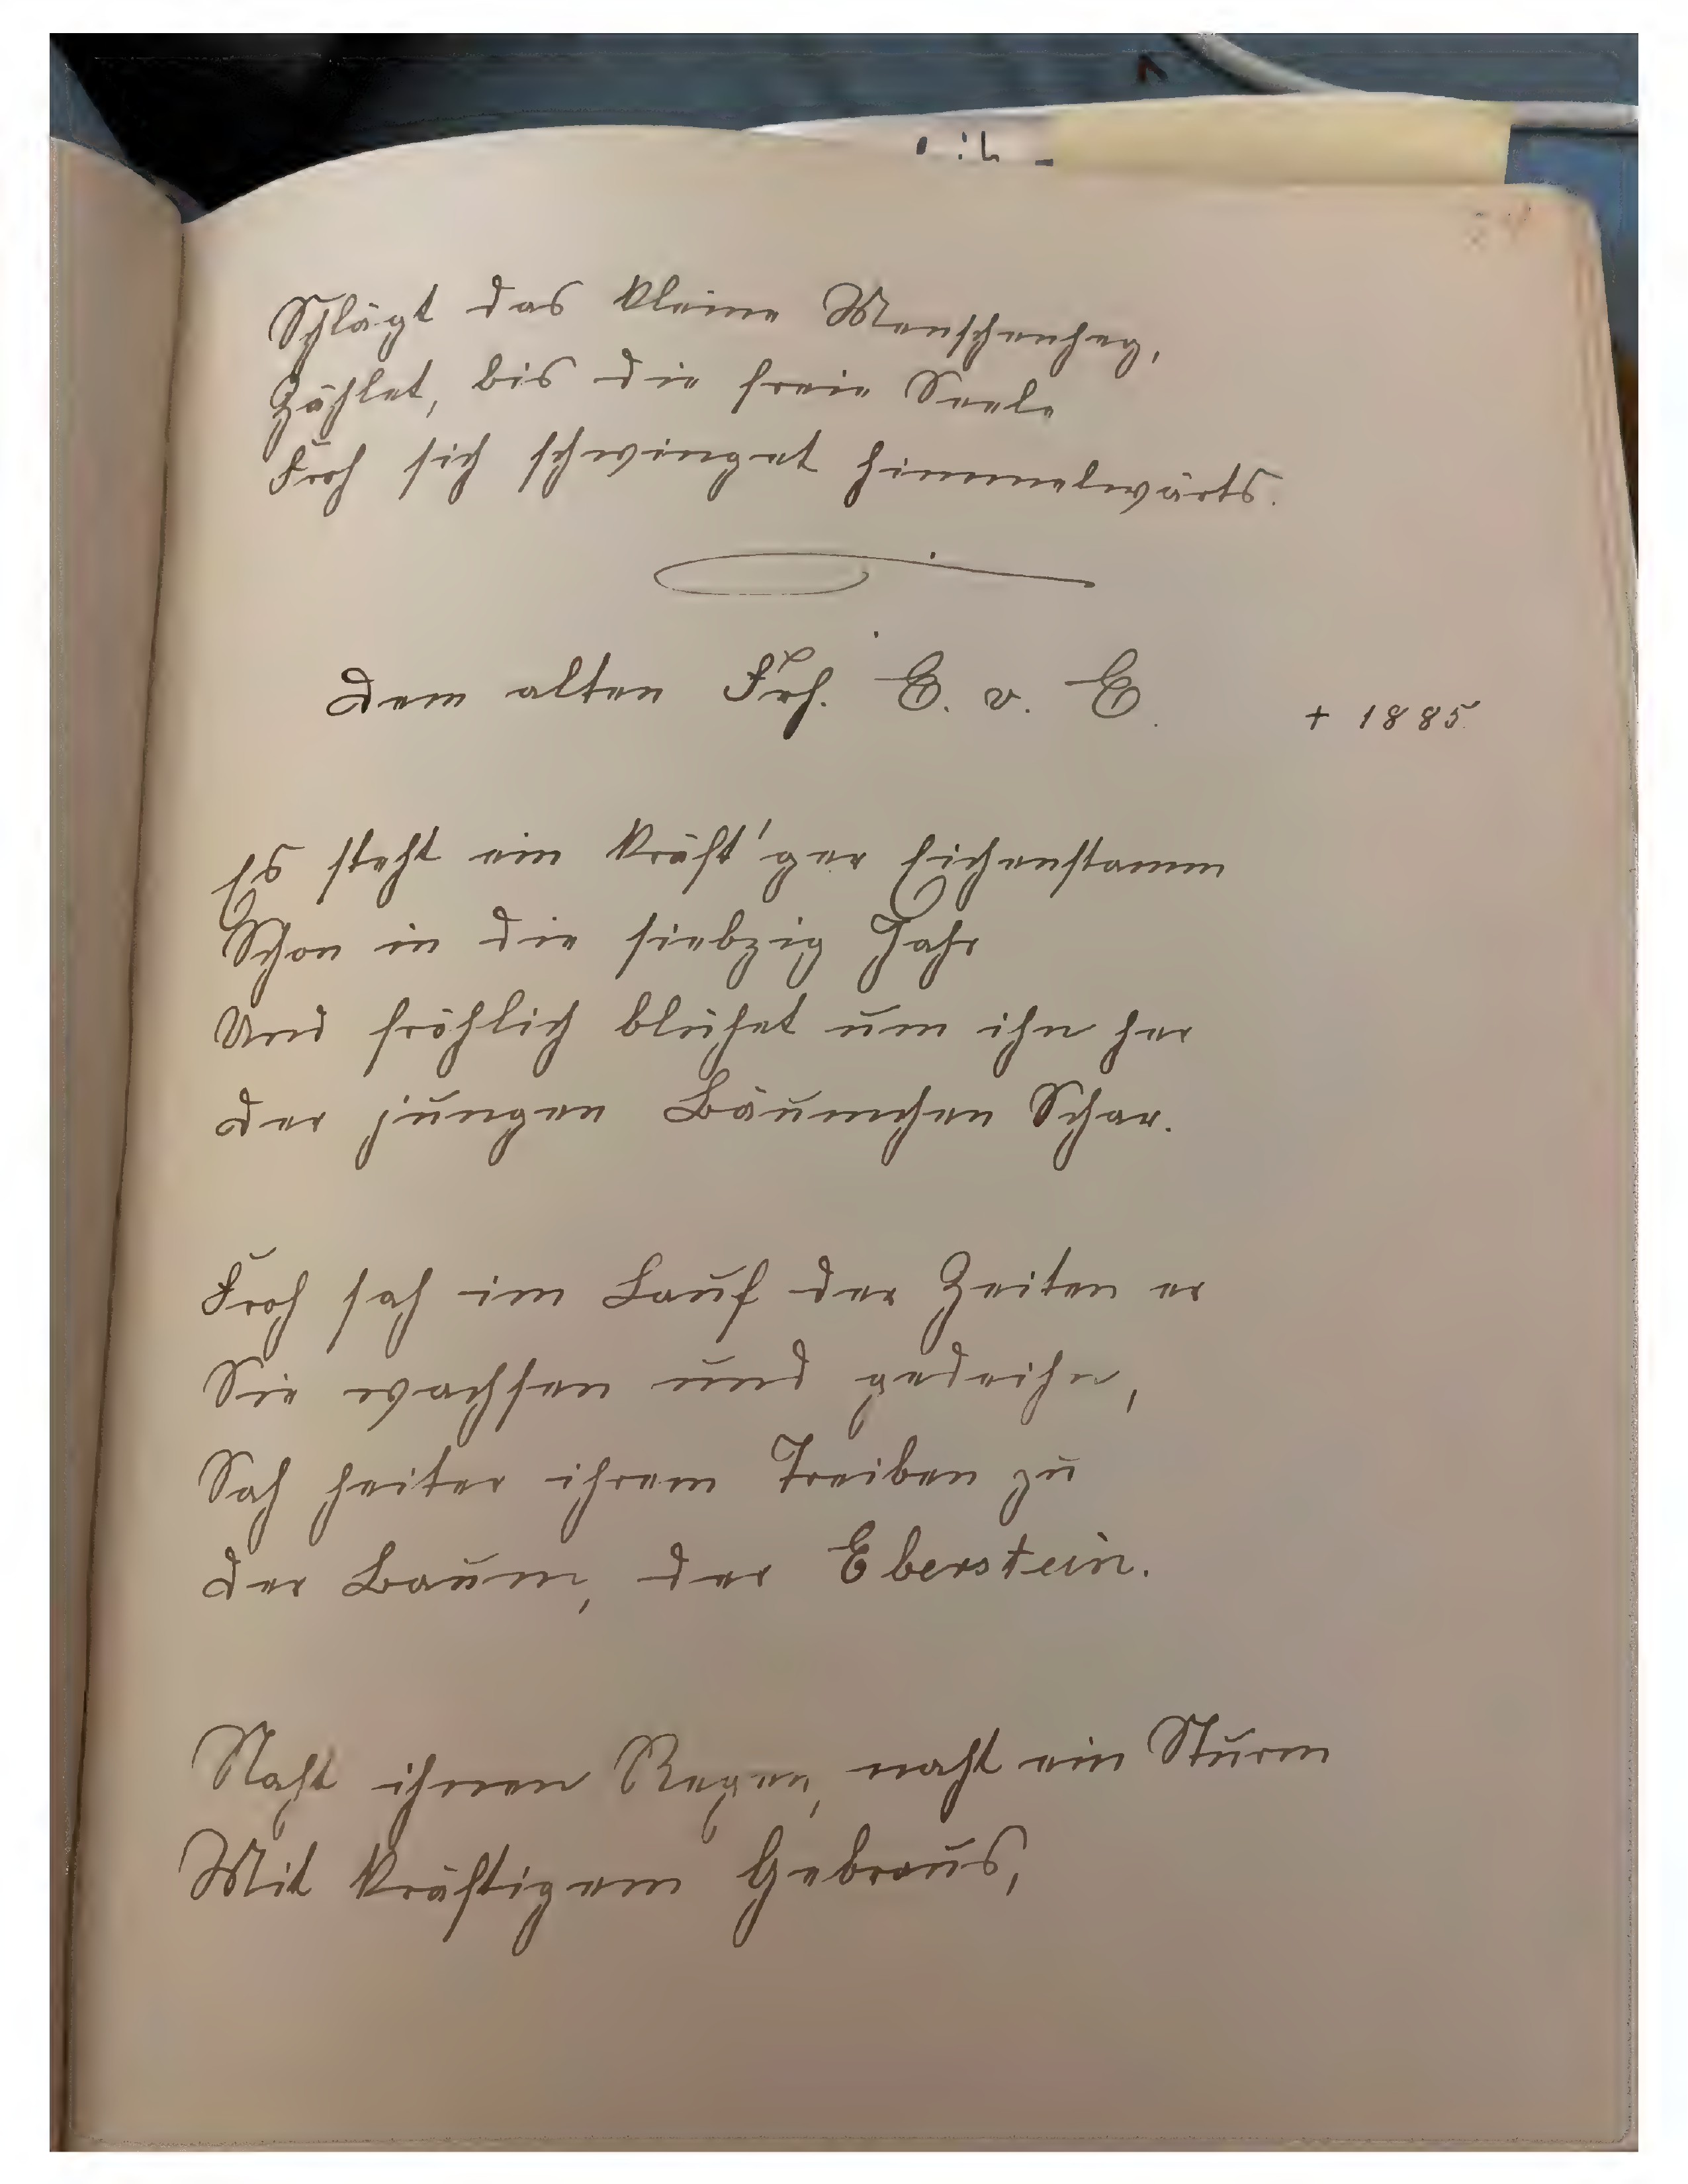 Schlägt das kleine Menschenherz,
Zählet, bis die freie Seele
Froh sich schwinget himmelwärts.
Dem alten Frh. E. v. E. † 1885
Es steht ein kräft'ger Eichenstamm
Schon in die siebzig Jahr
Und fröhlich blühet um ihn her
Der jungen Bäumchen Schar.
Froh sah im Lauf der Zeiten er
Sie wachsen und gedeihn,
Sah heiter ihrem Treiben zu
Der Baum, der Eberstein.
Naht ihnen Regen, naht ein Sturm
Mit kräftigem Gebraus,